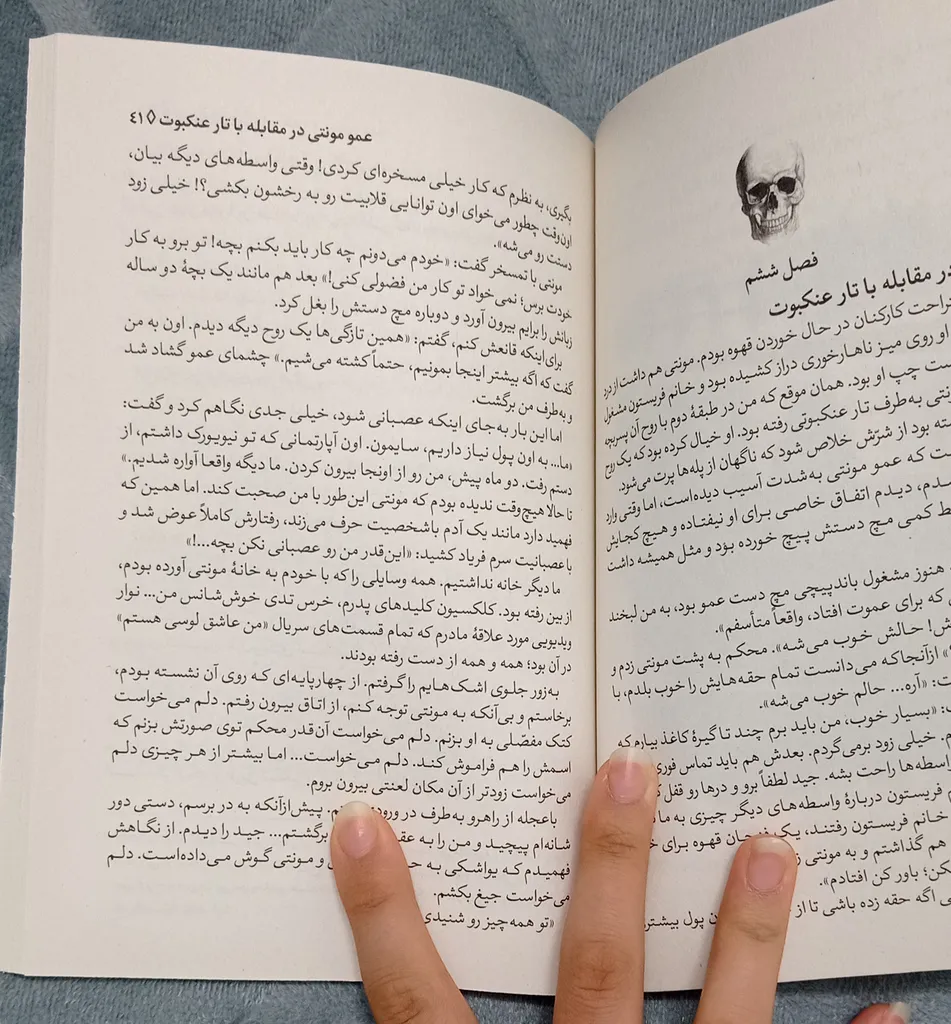 فصل ششم
در مقابله با تار عنکبوت
کارکنان در حال خوردن قهوه بودم. مونتی هم داشت از درد
او روی میز ناهارخوری دراز کشیده بود و خانم فریستون مشغول
ست چپ او بود. همان موقع که من در طبقهٔ دوم با روح آن پسربچه
ونتی به‌طرف تار عنکبوتی رفته بود. او خیال کرده بود که یک روح
سته بود از شرّش خلاص شود که ناگهان از پله‌ها پرت می‌شود.
ست که عمو مونتی به‌شدت آسیب دیده‌است، اما وقتی وارد
دم، دیدم اتفاق خاصی برای او نیفتاده و هیچ کجایش
ط کمی مچ دستش پیچ خورده بود و مثل همیشه داشت
هنوز مشغول باندپیچی مچ دست عمو بود، به من لبخند
که برای عموت افتاد، واقعاً متأسفم».
ش! حالش خوب می‌شه». محکم به پشت مونتی زدم و
ازآنجاکه می‌دانست تمام حقه‌هایش را خوب بلدم، با
ت: «آره... حالم خوب می‌شه».
ت: «بسیار خوب، من باید برم چند تا گیرهٔ کاغذ بیارم که
م. خیلی زود برمی‌گردم. بعدش هم باید تماس فوری
واسطه‌ها راحت بشه. جید لطفاً برو و درها رو قفل
م فریستون دربارهٔ واسطه‌های دیگر چیزی به ما
خانم فریستون رفتند، یک فنجان قهوه برای
هم گذاشتم و به مونتی
کن؛ باور کن افتادم».
ی اگه حقه زده باشی تا از پول بیشتر
عمو مونتی در مقابله با تار عنکبوت ◊ ٤١
بگیری، به نظرم که کار خیلی مسخره‌ای کردی! وقتی واسطه‌های دیگه بیان،
اون‌وقت چطور می‌خوای اون توانایی قلابیت رو به رخشون بکشی؟! خیلی زود
دستت رو می‌شه».
مونتی با تمسخر گفت: «خودم می‌دونم چه کار باید بکنم بچه! تو برو به کار
خودت برس؛ نمی‌خواد تو کار من فضولی کنی!» بعد هم مانند یک بچهٔ دو ساله
زبانش را برایم بیرون آورد و دوباره مچ دستش را بغل کرد.
برای اینکه قانعش کنم، گفتم: «همین تازگی‌ها یک روح دیگه دیدم. اون به من
گفت که اگه بیشتر اینجا بمونیم، حتماً کشته می‌شیم.» چشمای عمو گشاد شد
و به‌طرف من برگشت.
اما این بار به‌جای اینکه عصبانی شود، خیلی جدی نگاهم کرد و گفت:
«ما... به اون پول نیاز داریم، سایمون. اون آپارتمانی که تو نیویورک داشتم، از
دستم رفت. دو ماه پیش، من رو از اونجا بیرون کردن. ما دیگه واقعا آواره شدیم.»
تا حالا هیچ‌وقت ندیده بودم که مونتی این‌طور با من صحبت کند. اما همین که
فهمید دارد مانند یک آدم باشخصیت حرف می‌زند، رفتارش کاملاً عوض شد و
با عصبانیت سرم فریاد کشید: «این‌قدر من رو عصبانی نکن بچه...!»
ما دیگر خانه نداشتیم. همه وسایلی را که با خودم به خانهٔ مونتی آورده بودم،
از بین رفته بود. کلکسیون کلیدهای پدرم، خرس تدی خوش‌شانس من... نوار
ویدیویی مورد علاقهٔ مادرم که تمام قسمت‌های سریال «من عاشق لوسی هستم»
در آن بود؛ همه و همه از دست رفته بودند.
به‌زور جلوی اشک‌هایم را گرفتم. از چهارپایه‌ای که روی آن نشسته بودم،
برخاستم و بی‌آنکه به مونتی توجه کنم، از اتاق بیرون رفتم. دلم می‌خواست
کتک مفصّلی به او بزنم. دلم می‌خواست آن‌قدر محکم توی صورتش بزنم که
اسمش را هم فراموش کند. دلم می‌خواست... اما بیشتر از هر چیزی دلم
می‌خواست زودتر از آن مکان لعنتی بیرون بروم.
باعجله از راهرو به‌طرف در ورودی پیش‌ازآنکه به در برسم، دستی دور
شانه‌ام پیچید و من را به برگشتم... جید را دیدم. از نگاهش
فهمیدم که یواشکی به و مونتی گوش می‌داده‌است. دلم
می‌خواست جیغ بکشم.
«تو همه‌چیز رو شنیدی